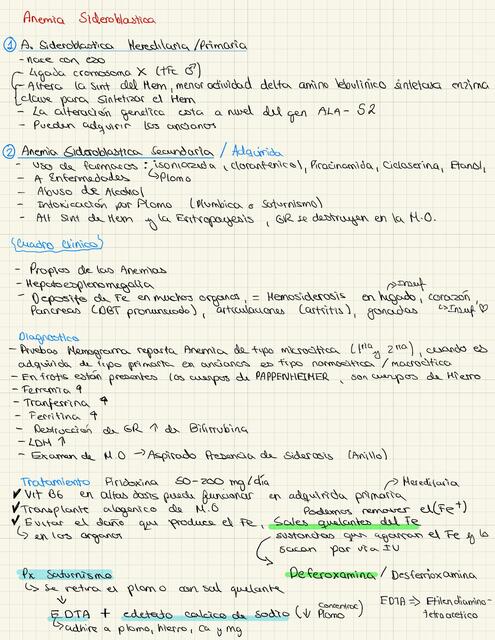 Anemia Sideroblastica
① A. Sideroblastica Hereditaria/Primaria
- nace con eso
- Ligada cromosoma X (tfc ♂)
- Altera la sint del Hem, menor actividad delta amino lebulinico sintetasa enzima
clave para sintetizar el Hem
- La alteración genetica esta a nivel del gen ALA-S2
- Pueden adquirir los ancianos
② Anemia Sideroblastica Secundaria / Adquirida
- Uso de farmacos: isoniazida, cloranfenicol, Piracinamida, Cicloserina, Etanol,
- A Enfermedades ↳ Plomo
- Abuso de Alcohol
- Intoxicación por Plomo (Plumbica o Saturnismo)
- Alt Sint de Hem y la Eritropoyesis, GR se destruyen en la M.O.
Cuadro Clinico
- Propios de las Anemias
- Hepatoesplenomegalia → Insuf
- Deposito de Fe en muchos organos, = Hemosiderosis en higado, corazón
Pancreas (DBT pronunciado), articulaciones (artritis), gonadas ↳ Insuf ♡
Diagnostico
- Pruebas Hemograma reporta Anemia de tipo microcitica (1ria y 2ria), cuando es
adquirida de tipo primaria en ancianos es tipo normocitica / macrocitica
- En frotis están presentes los cuerpos de PAPPENHEIMER, son cuerpos de Hierro
- Ferremia ↑
- Tranferrina ↑
- Ferritina ↑
- Destrucción de GR ↑ de Bilirrubina
- LDH ↑
- Examen de M.O → Aspirado Presencia de Siderosis (Anillo)
Tratamiento Piridoxina 50-200 mg/dia → Hereditaria
✓ Vit B6 en altas dosis puede funcionar en adquirida primaria
✓ Transplante alogenico de M.O Podemos remover el (Fe+)
✓ Evitar el daño que produce el Fe, Sales quelantes del Fe
↳ en los organos sustancias que agarran el Fe y lo
sacan por via IV
Px Saturnismo Deferoxamina / Desferioxamina
↳ Se retira el plomo con sal quelante
EDTA + edetato calcico de sodio (↓ Concentrac Plomo) EDTA ⇒ Etilendiamino-
tetraacetico
↳ adhiere a plomo, hierro, Ca y Mg